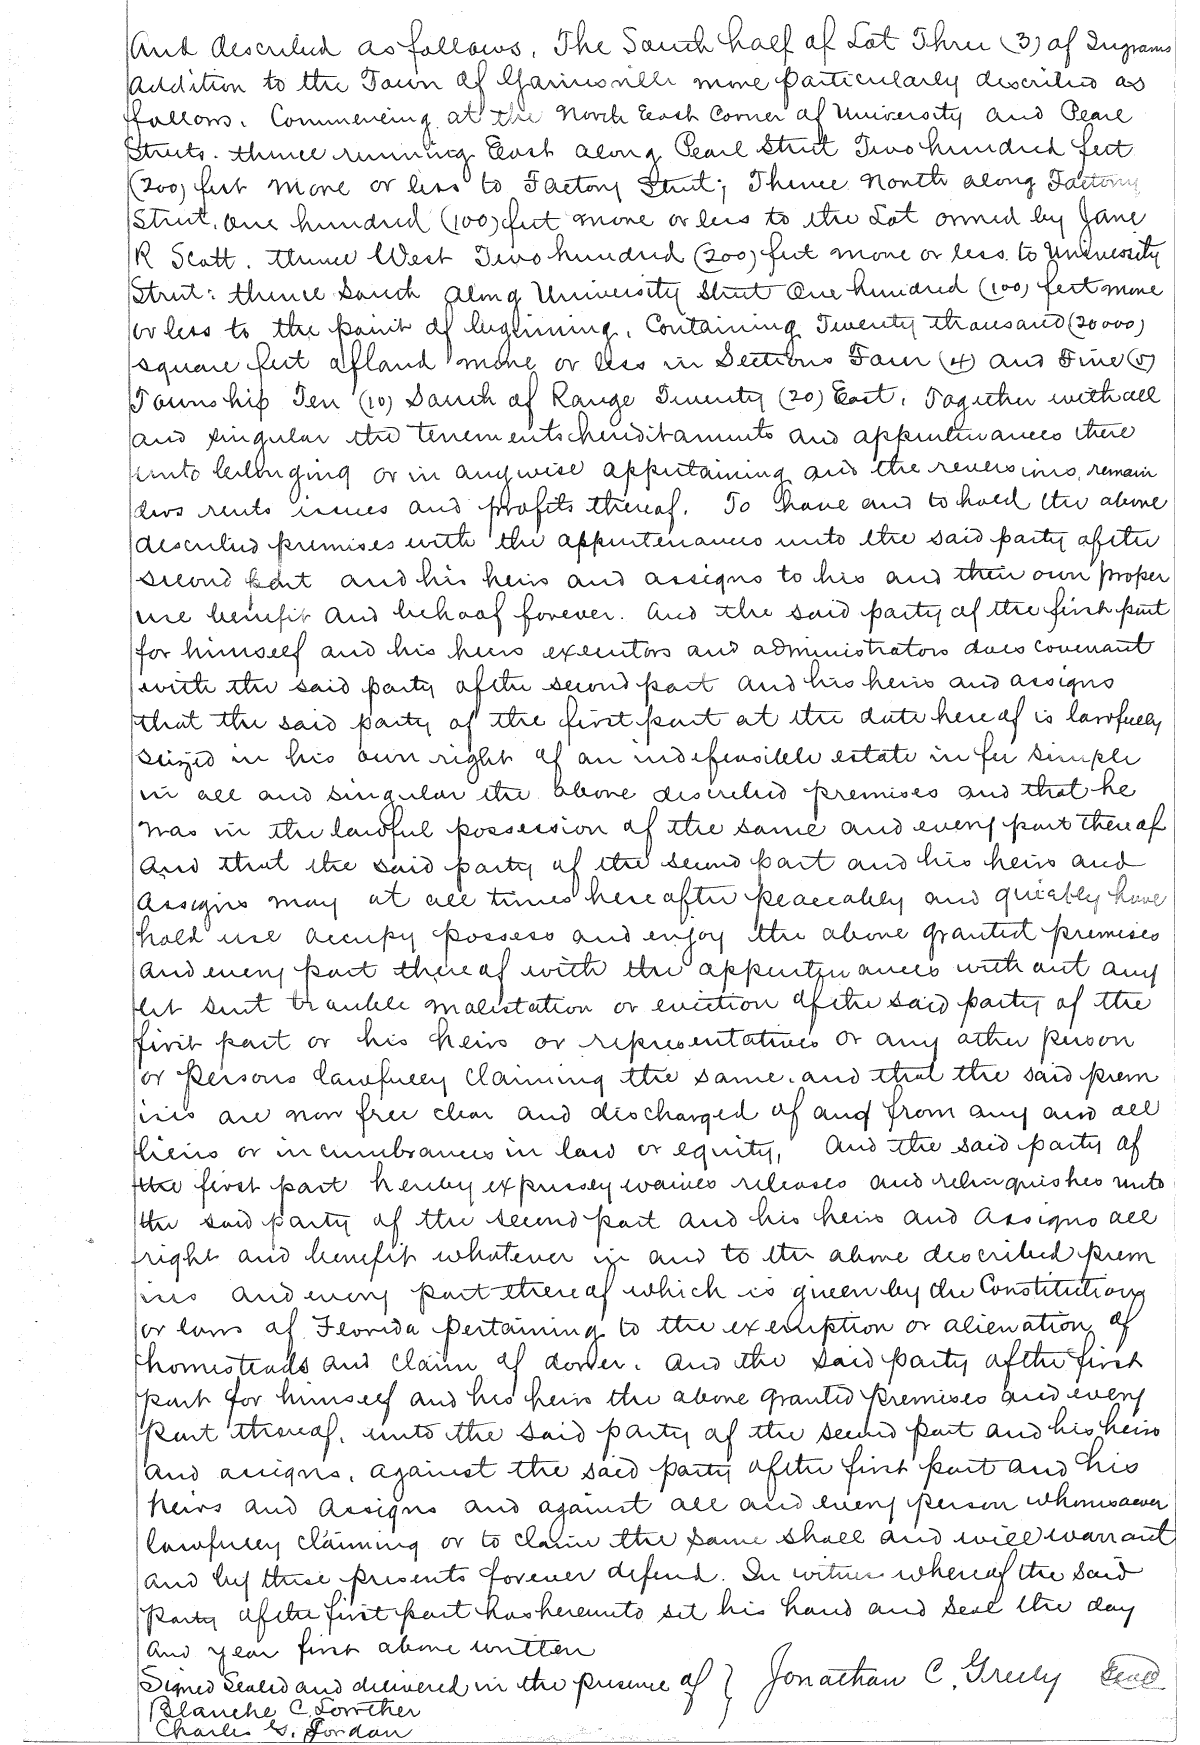 And described as follows, The South half of Lot Three (3) of Ingrams
Addition to the Town of Gainesville more particularly described as
follows. Commencing at the North East Corner of University and Pearl
Streets. thence running East along Pearl Street Two hundred feet
(200) feet more or less to Factory Street; Thence North along Factory
Street, one hundred (100) feet more or less to the Lot owned by Jane
R Scott. thence West Two hundred (200) feet more or less to University
Street: thence South along University Street One hundred (100) feet more
or less to the point of beginning, Containing Twenty thousand (20000)
square feet of land more or less in Sections Four (4) and Five (5)
Township Ten (10) South of Range Twenty (20) East, Together with all
and singular the tenements hereditaments and appurtenances there
unto belonging or in anywise appertaining and the reversions, remain
ders rents issues and profits thereof. To have and to hold the above
described premises with the appurtenances unto the said party of the
second part and his heirs and assigns to his and their own proper
use benefit and behoof forever. And the said party of the first part
for himself and his heirs executors and administrators does covenant
with the said party of the second part and his heirs and assigns
that the said party of the first part at the date hereof is lawfully
seized in his own right of an indefeasible estate in fee simple
in all and singular the above described premises and that he
was in the lawful possession of the same and every part thereof
And that the said party of the second part and his heirs and
Assigns may at all times hereafter peaceably and quietly have
hold use occupy possess and enjoy the above granted premises
and every part thereof with the appurtenances without any
let suit trouble molestation or eviction of the said party of the
first part or his heirs or representatives or any other person
or persons lawfully claiming the same. and that the said prem
ises are now free clear and discharged of and from any and all
liens or incumbrances in law or equity, And the said party of
the first part hereby expressly waives releases and relinquishes unto
the said party of the second part and his heirs and Assigns all
right and benefit whatever in and to the above described prem
ises and every part thereof which is given by the Constitution
or laws of Florida pertaining to the exemption or alienation of
homesteads and claim of dower. And the said party of the first
part for himself and his heirs the above granted premises and every
part thereof, unto the said party of the second part and his heirs
and assigns, against the said party of the first part and his
heirs and Assigns and against all and every person whomsoever
lawfully claiming or to claim the same shall and will warrant
and by these presents forever defend. In witness whereof the said
Party of the first part has hereunto set his hand and seal the day
and year first above written
Signed Sealed and delivered in the presence of } Jonathan C. Greely Seal
Blanche C. Lowther
Charles G. Jordan